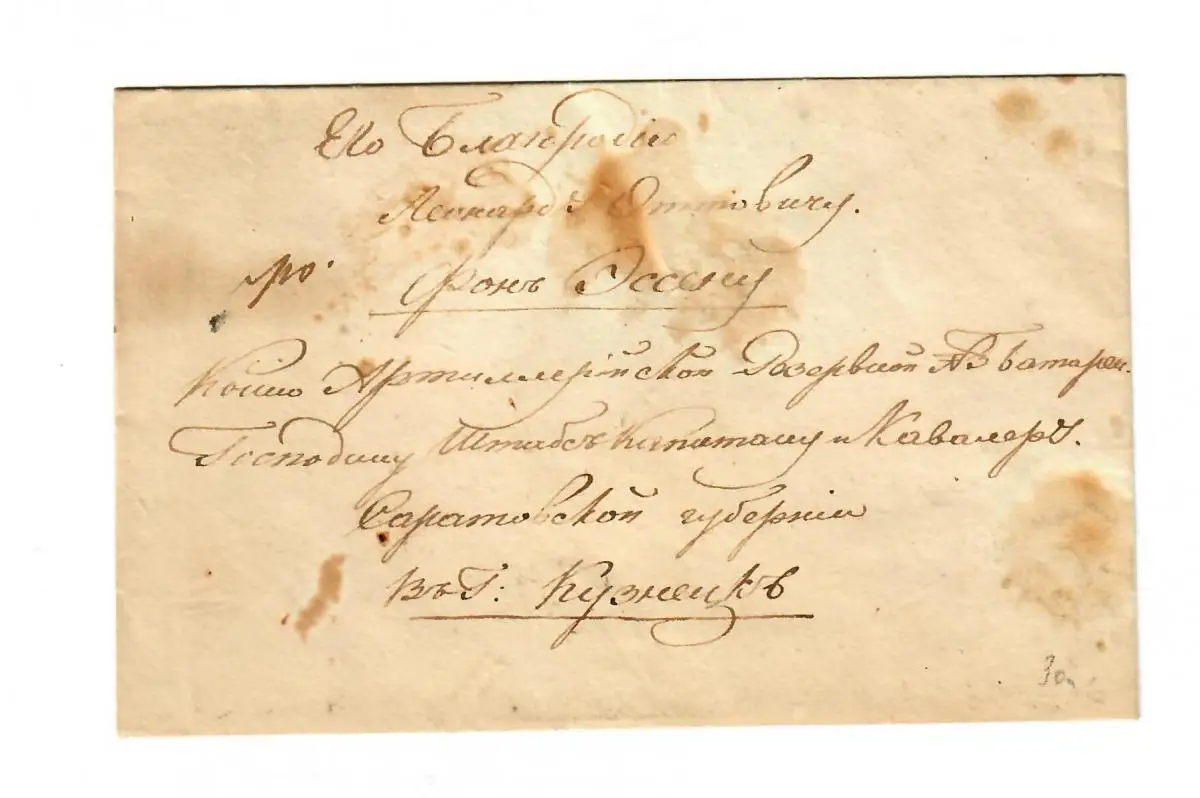 Его Благородію
Леонарду Оттовичу.
фонъ Эссену
Конно Артиллерійской Резервной батареи.
Господину Штабсъ Капитану и Кавалеру.
Саратовской губерніи
въ г: Кузнецкъ